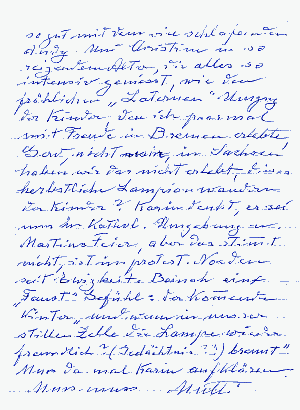 so gut mit dem viel schlafenden
Andy. Und Christine in so
reizendem Alter, die alles so
intensiv geniesst, wie den
fröhlichen „Laternen" Umzug
der Kinder, den ich paarmal
mit Freude in Bremen erlebte.
Gerd, nicht, in Sachsen
haben wir das nicht erlebt,
herbstliche Lampionwandern
der Kinder? Karin denkt, er sei
nur in Kathol. Umgebung
Martinsfeier, aber das stimmt
nicht, ist im protest. Norden
seit Ewigkeiten Beinah ein
Faust-Gefühl: der kommende
Winter, „und wenn in unsrer
stillen Zelle die Lampe wieder
freundlich? (Gedächtnis?!) brennt"
Muss da mal Karin aufklären.
Mutti